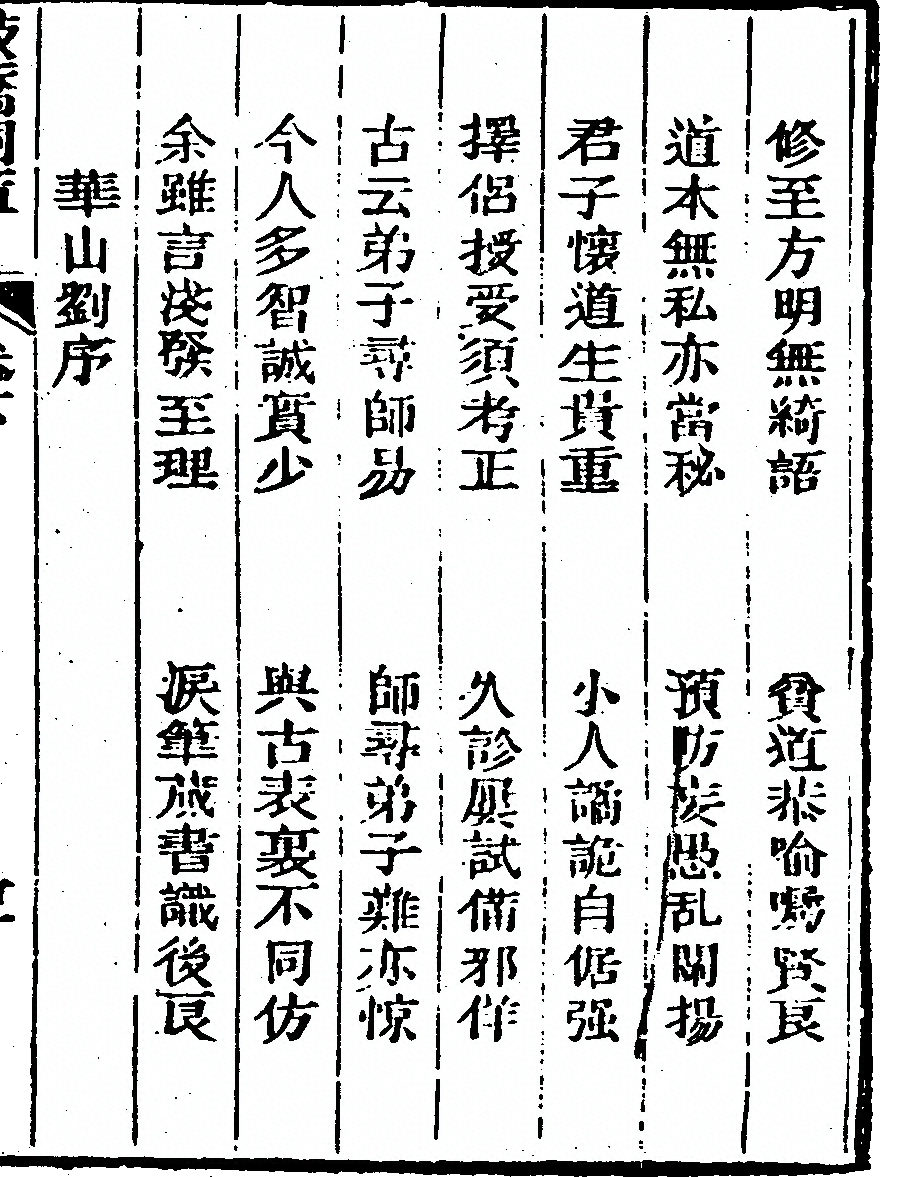 修至方明無綺語 貧道恭喻囑賢良
道本無私亦當秘 預防妄愚乱開揚
君子懷道生貴重 小人譎詭自倨强
擇侶授受須考正 久診異試備邪佯
古云弟子尋師易 師尋弟子難亦惊
今人多智誠實少 與古表裏不同仿
余雖言淺發至理 淚筆成書識後良
華山劉序